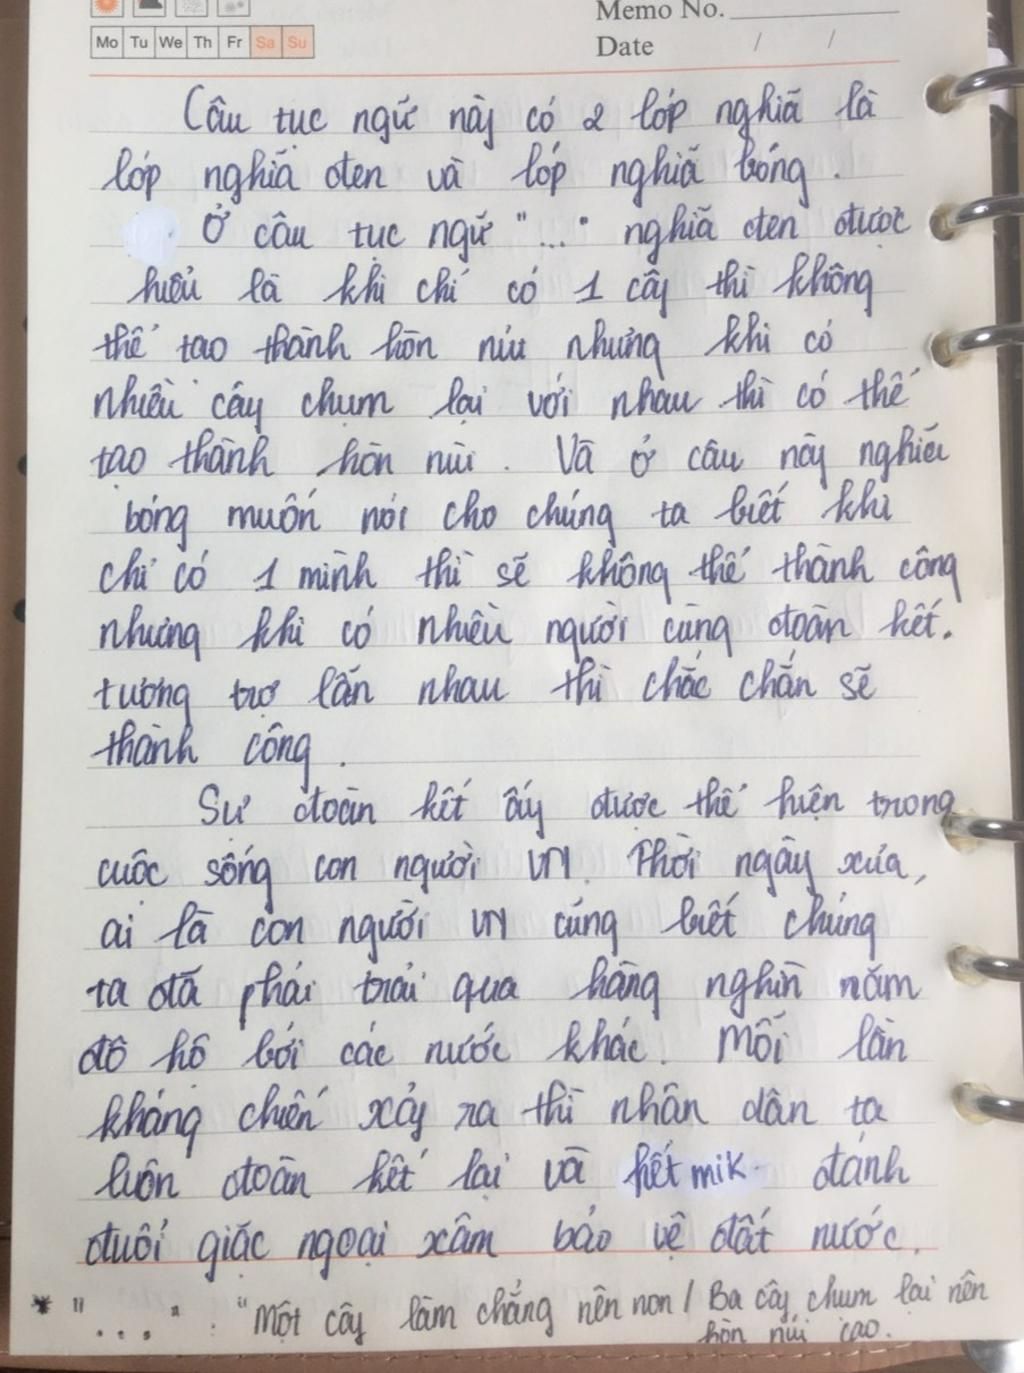 Memo No.
Mo Tu We Th Fr Sa Su
Date / /
Câu tục ngữ này có 2 lớp nghiã là
lớp nghiã đen và lớp nghiã bóng .
Ở câu tục ngữ "..." nghiã đen được
hiểu là khi chỉ có 1 cây thì không
thể tạo thành hòn núi nhưng khi có
nhiều cây chụm lại với nhau thì có thể
tạo thành hòn núi . Và ở câu này nghiã
bóng muốn nói cho chúng ta biết khi
chỉ có 1 mình thì sẽ không thể thành công
nhưng khi có nhiều người cùng đoàn kết.
tương trợ lẫn nhau thì chắc chắn sẽ
thành công .
Sự đoàn kết ấy được thể hiện trong
cuộc sống con người VN. Thời ngày xưa,
ai là con người VN cũng biết chúng
ta đã phải trải qua hàng nghìn năm
đô hộ bởi các nước khác. Mỗi lần
kháng chiến xảy ra thì nhân dân ta
luôn đoàn kết lại và hết mik đánh
đuổi giặc ngoại xâm bảo vệ đất nước.
* "..." : "Một cây làm chẳng nên non / Ba cây chụm lại nên
hòn núi cao.